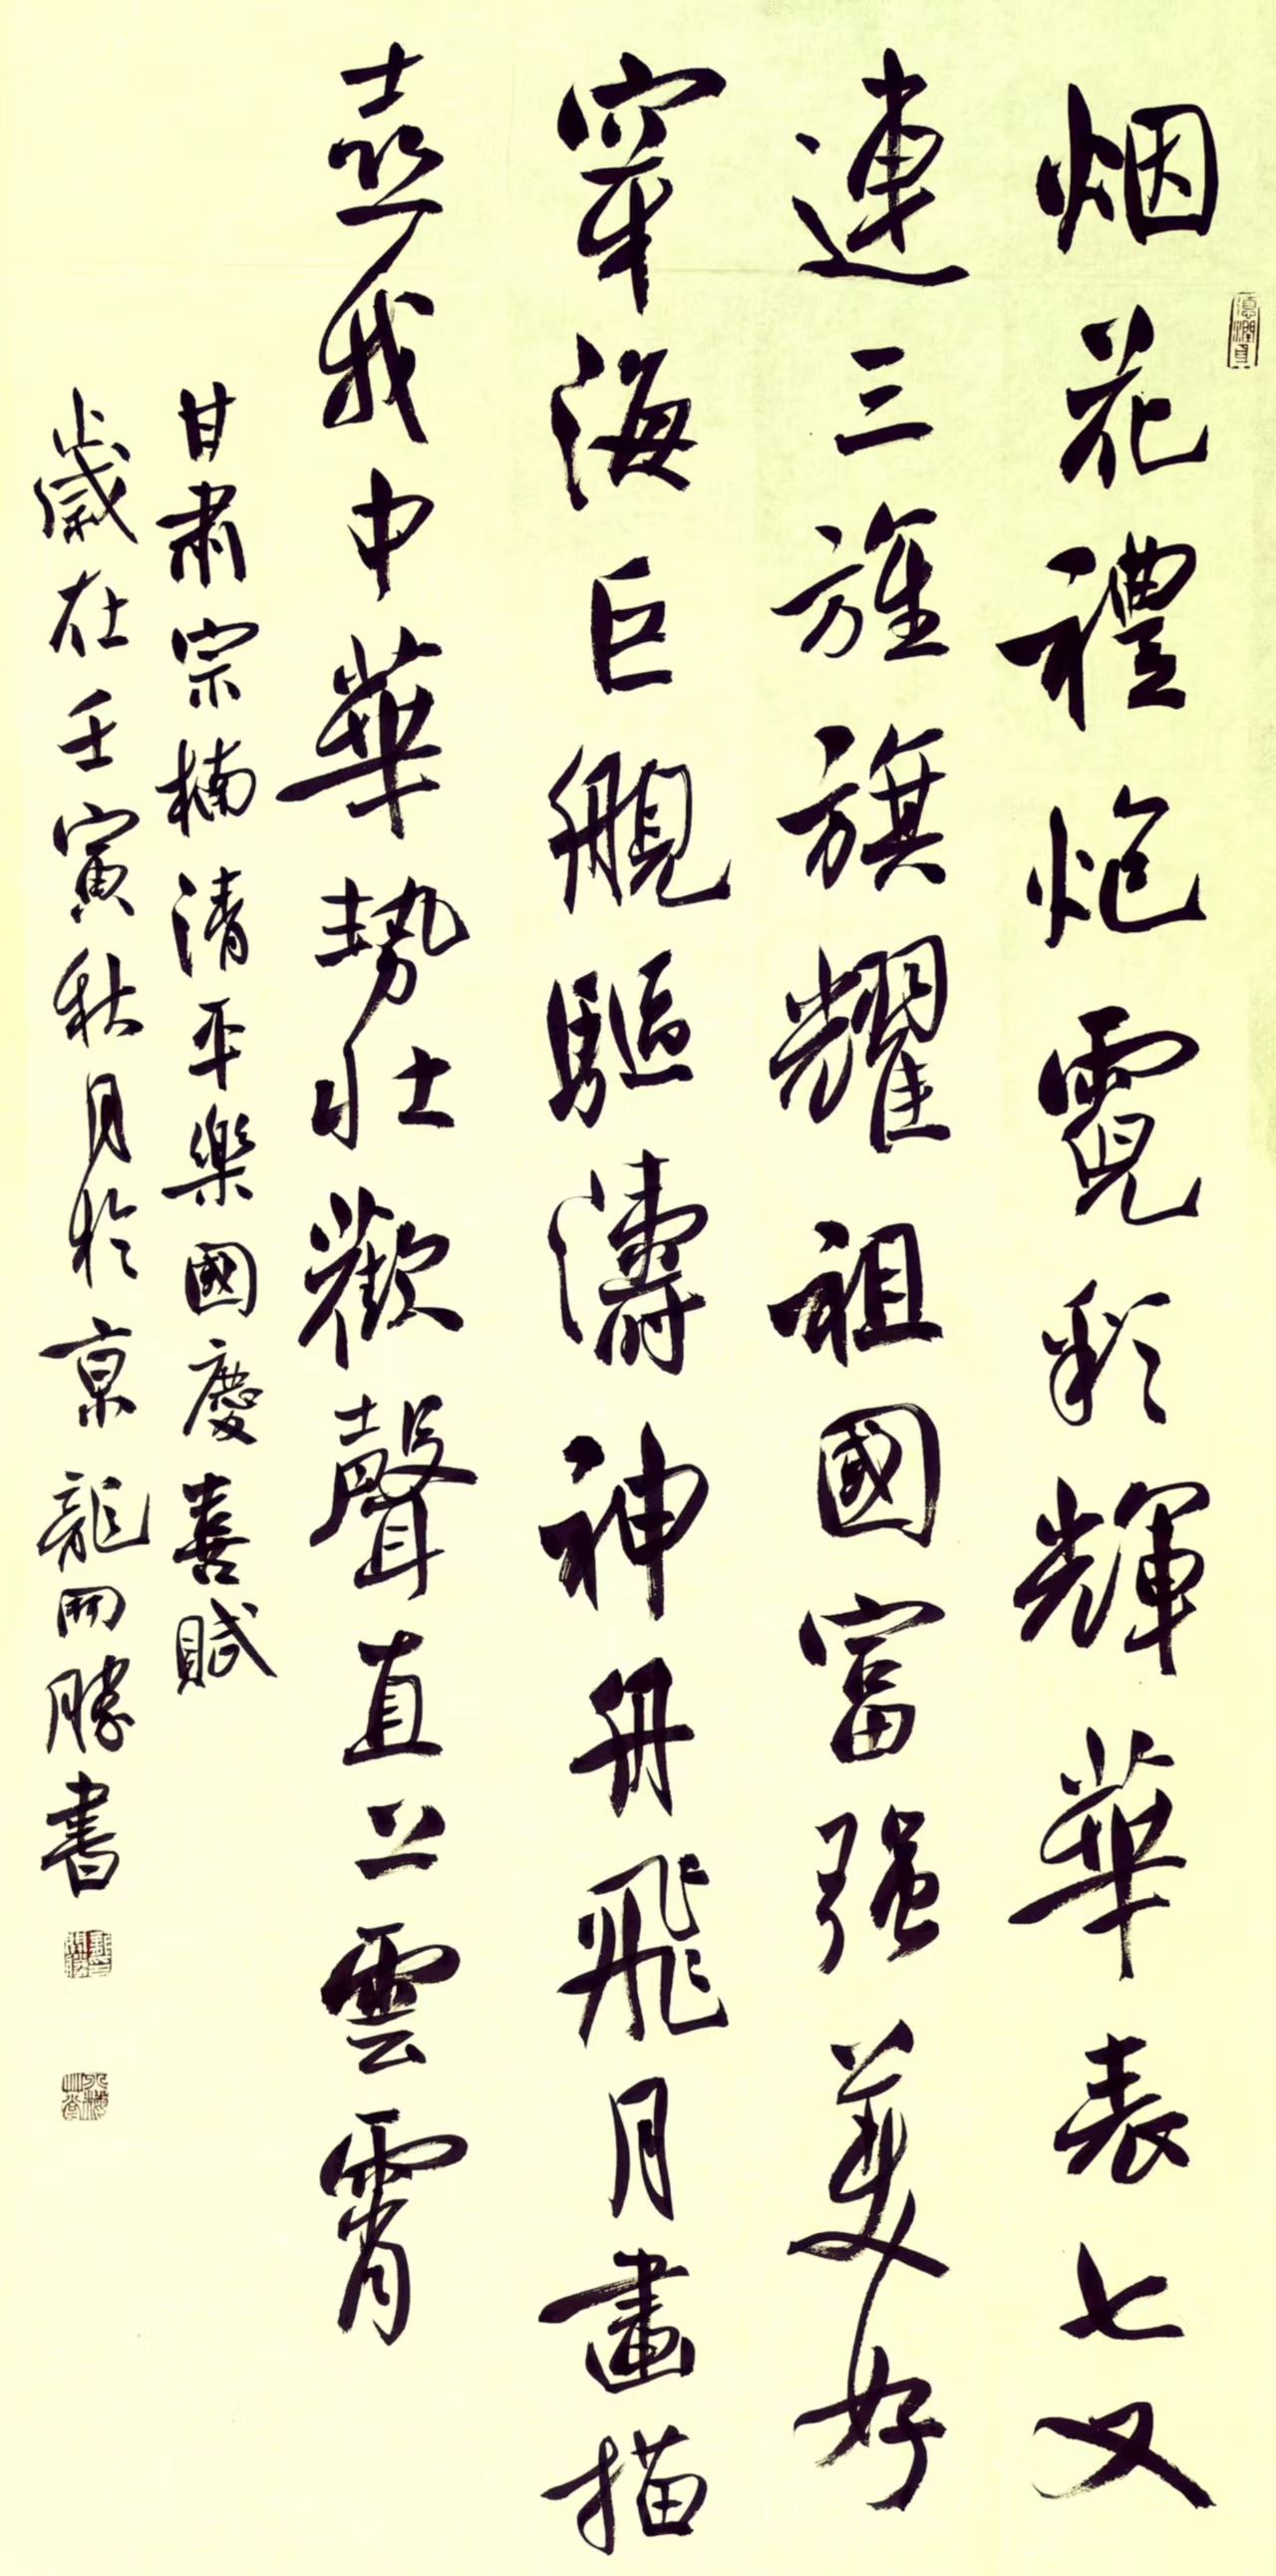 烟花禮炮霓彩輝華表七又
連三旌旗耀祖國富强美好
穿海巨艦驅濤神舟飛月畫描
喜我中華勢壮歡聲直上雲霄
甘肅宗楠清平樂國慶喜賦
歲在壬寅秋月於京龍開勝書